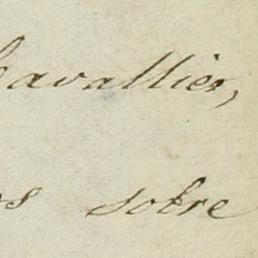 Cavallier,
os sobre